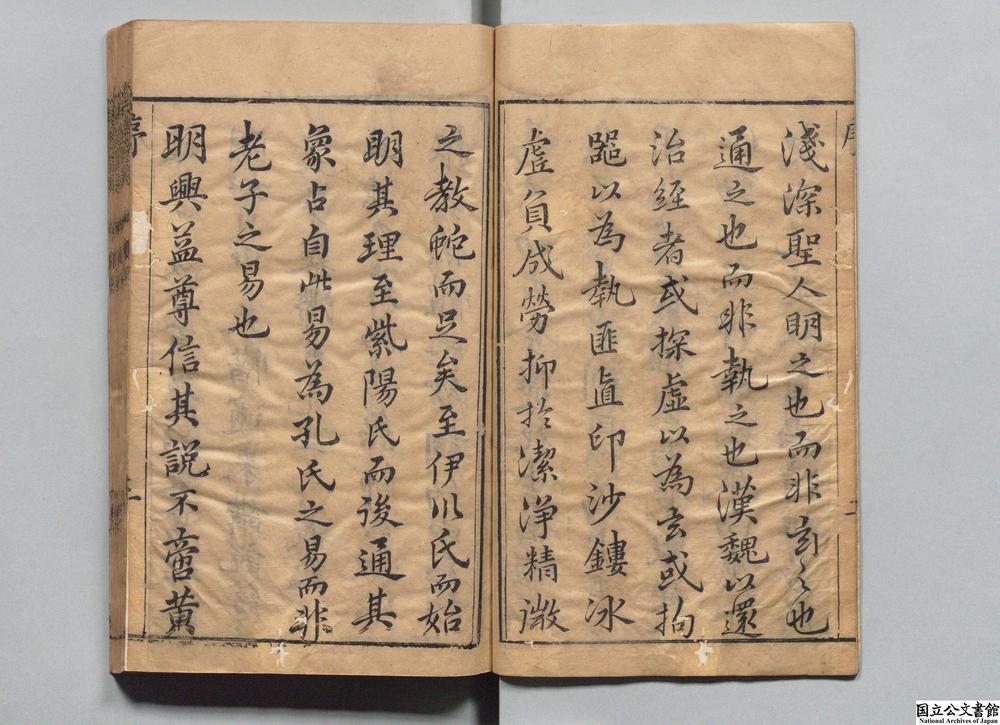 淺深聖人明之也而非玄之也
通之也而非執之也漢魏以還
治經者或探虛以為玄或拘
以為執匪直印沙鏤冰
虛負成勞抑於潔淨精微
之教而足矣至伊川氏而始
明其理至紫陽氏而後通其
象占自此易為孔氏之易而非
老子之易也
明興益尊信其說不啻黃
序
序
国立公文書館
National Archives of Japan